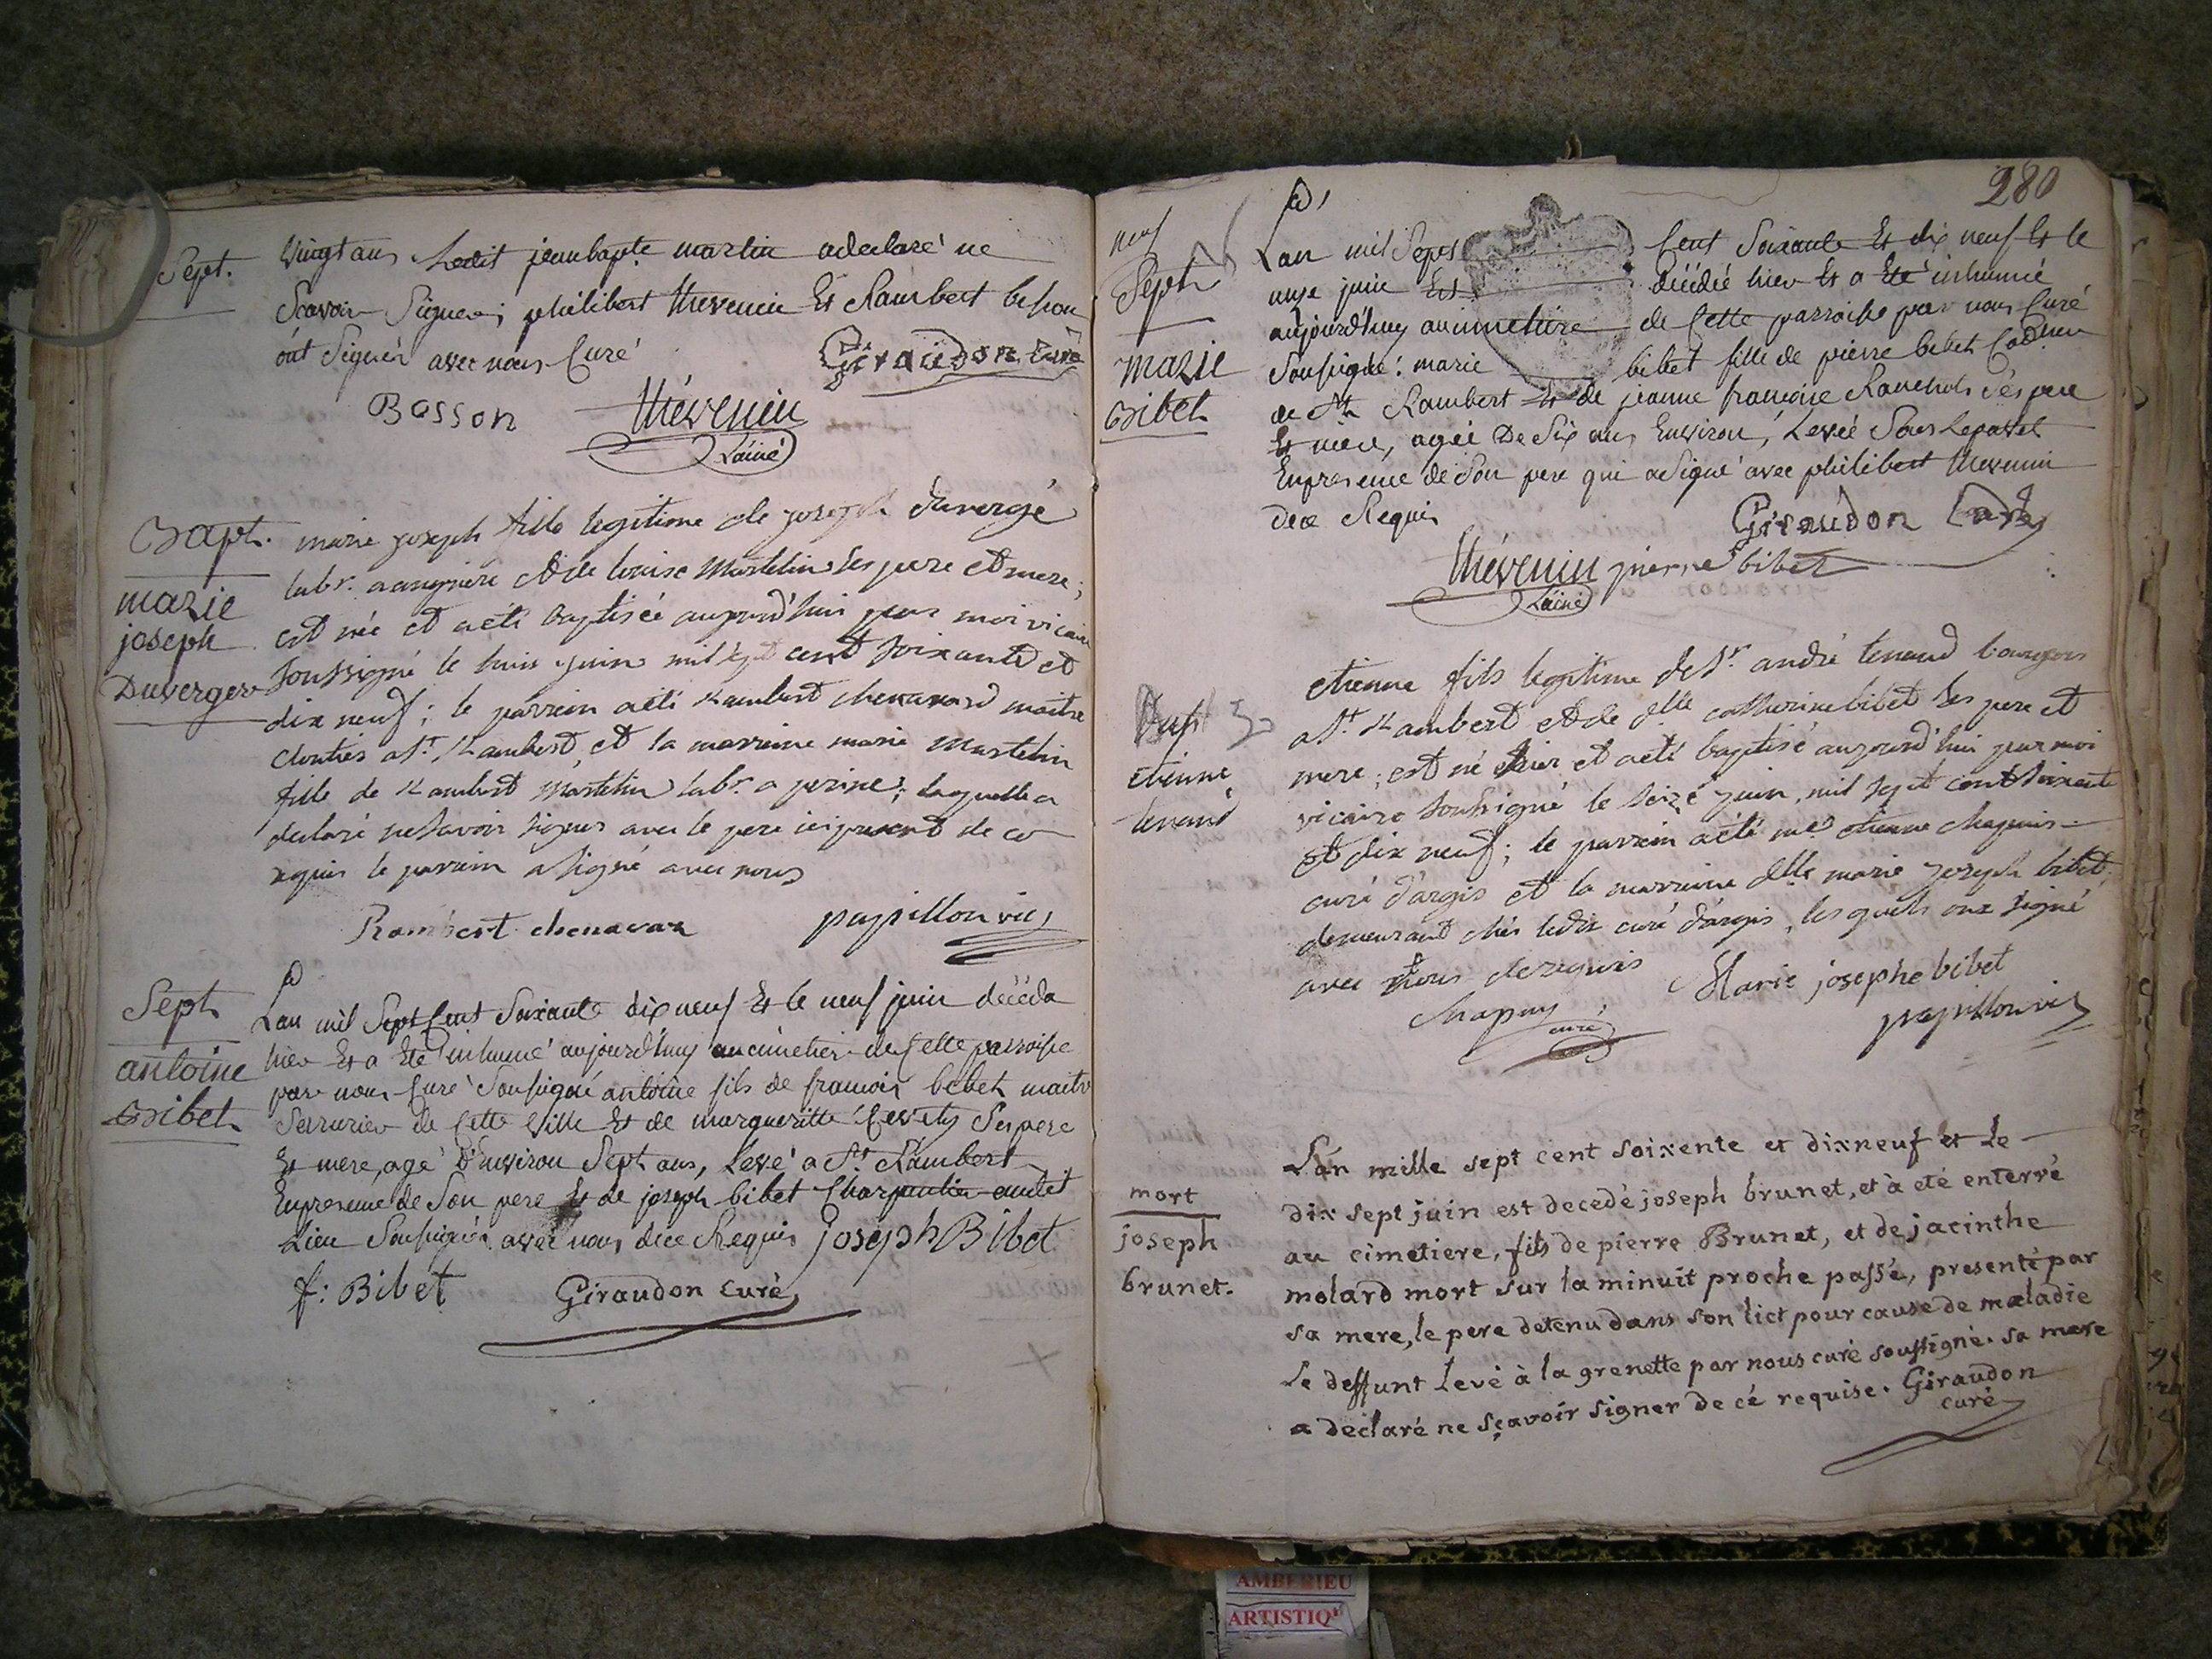 Sept.
vingt ans Ledit jean bapte martin a declaré ne
Scavoir Signer, philibert thevenin Et Rambert besson
ont Signés avec nous Curé
Giraudon Curé
Bosson
thévenin
Lainé
Bapt.
marie
joseph
Duverger
marie joseph fille legitime de joseph duvergé
labr. a angrière et de louise Martelin ses pere et mere;
est née et a eté baptisée aujourd'hui par moi vicaire
soussigné le huis juin mil sept cent soixante et
dix neuf; le parrein a eté rambert chenavard maitre
cloutier a St. Rambert, et la marreine marie Martelin
fille de rambert Martelin labr. a perine; laquelle a
declaré ne savoir signer avec le pere ici present de ce
requis le parrein a signé avec nous
Rambert chenavar
papillon vic
Sept
antoine
Bibet
Lan mil Sept Cent Soixante dix neuf Et le neuf juin décéda
hier Et a Eté inhumé aujourd'huy au cimetier de Cette parroisse
par nous Curé Soussigné antoine fils de francois bibet maitre
Serrurier de Cette Ville Et de margueritte Ses pere
Et mere, agé D'environ Sept ans, Levé a St Rambert
En presence de Son pere Et de joseph bibet Charpentier audit
Lieu Soussignés avec nous de ce Requis joseph Bibet
f: Bibet
Giraudon curé
280
neuf
Sept
marie
Bibet
Lan mil Sept Cent Soixante Et dix neuf Et le
onze juin Est décédée hier Et a Eté inhumée
aujourd'huy au cimetiere de Cette parroisse par nous Curé
Soussigné: marie bibet fille de pierre bibet
de St Rambert Et de jeanne francoise Ranchols Ses pere
Et mere, agée De Six ans Environ, Levée Sous
En presence de Son pere qui a Signé avec philibert thevenin
de ce Requis
Giraudon Curé
thévenin pierre bibet
Lainé
Bapt
etienne
tenand
etienne fils legitime de Sr. andré tenand bourgeois
a St. Rambert et de dlle catherine bibet ses pere et
mere; est né hier et a eté baptisé aujourd'hui par moi
vicaire soussigné le seize juin, mil sept cent soixante
et dix neuf; le parrein a eté me etienne chapuis
curé d'argis et la marreine dlle marie joseph bibet
demeurant chés ledit curé d'argis, lesquels ont signé
avec nous de ce requis
Marie josephe bibet
Chapuy
curé
papillon vic
mort
joseph
brunet.
L'an mille sept cent soixente et dixneuf et le
dix sept juin est decedé joseph brunet, et à eté enterré
au cimetiere, fils de pierre Brunet, et de jacinthe
molard mort sur la minuit proche passée, presenté par
sa mere, le pere detenu dans son lict pour cause de maladie
Le deffunt Levé à la grenette par nous curé soussigné. sa mere
a declaré ne sçavoir signer de cé requise. Giraudon
curé
AMBERIEU
ARTISTIQ